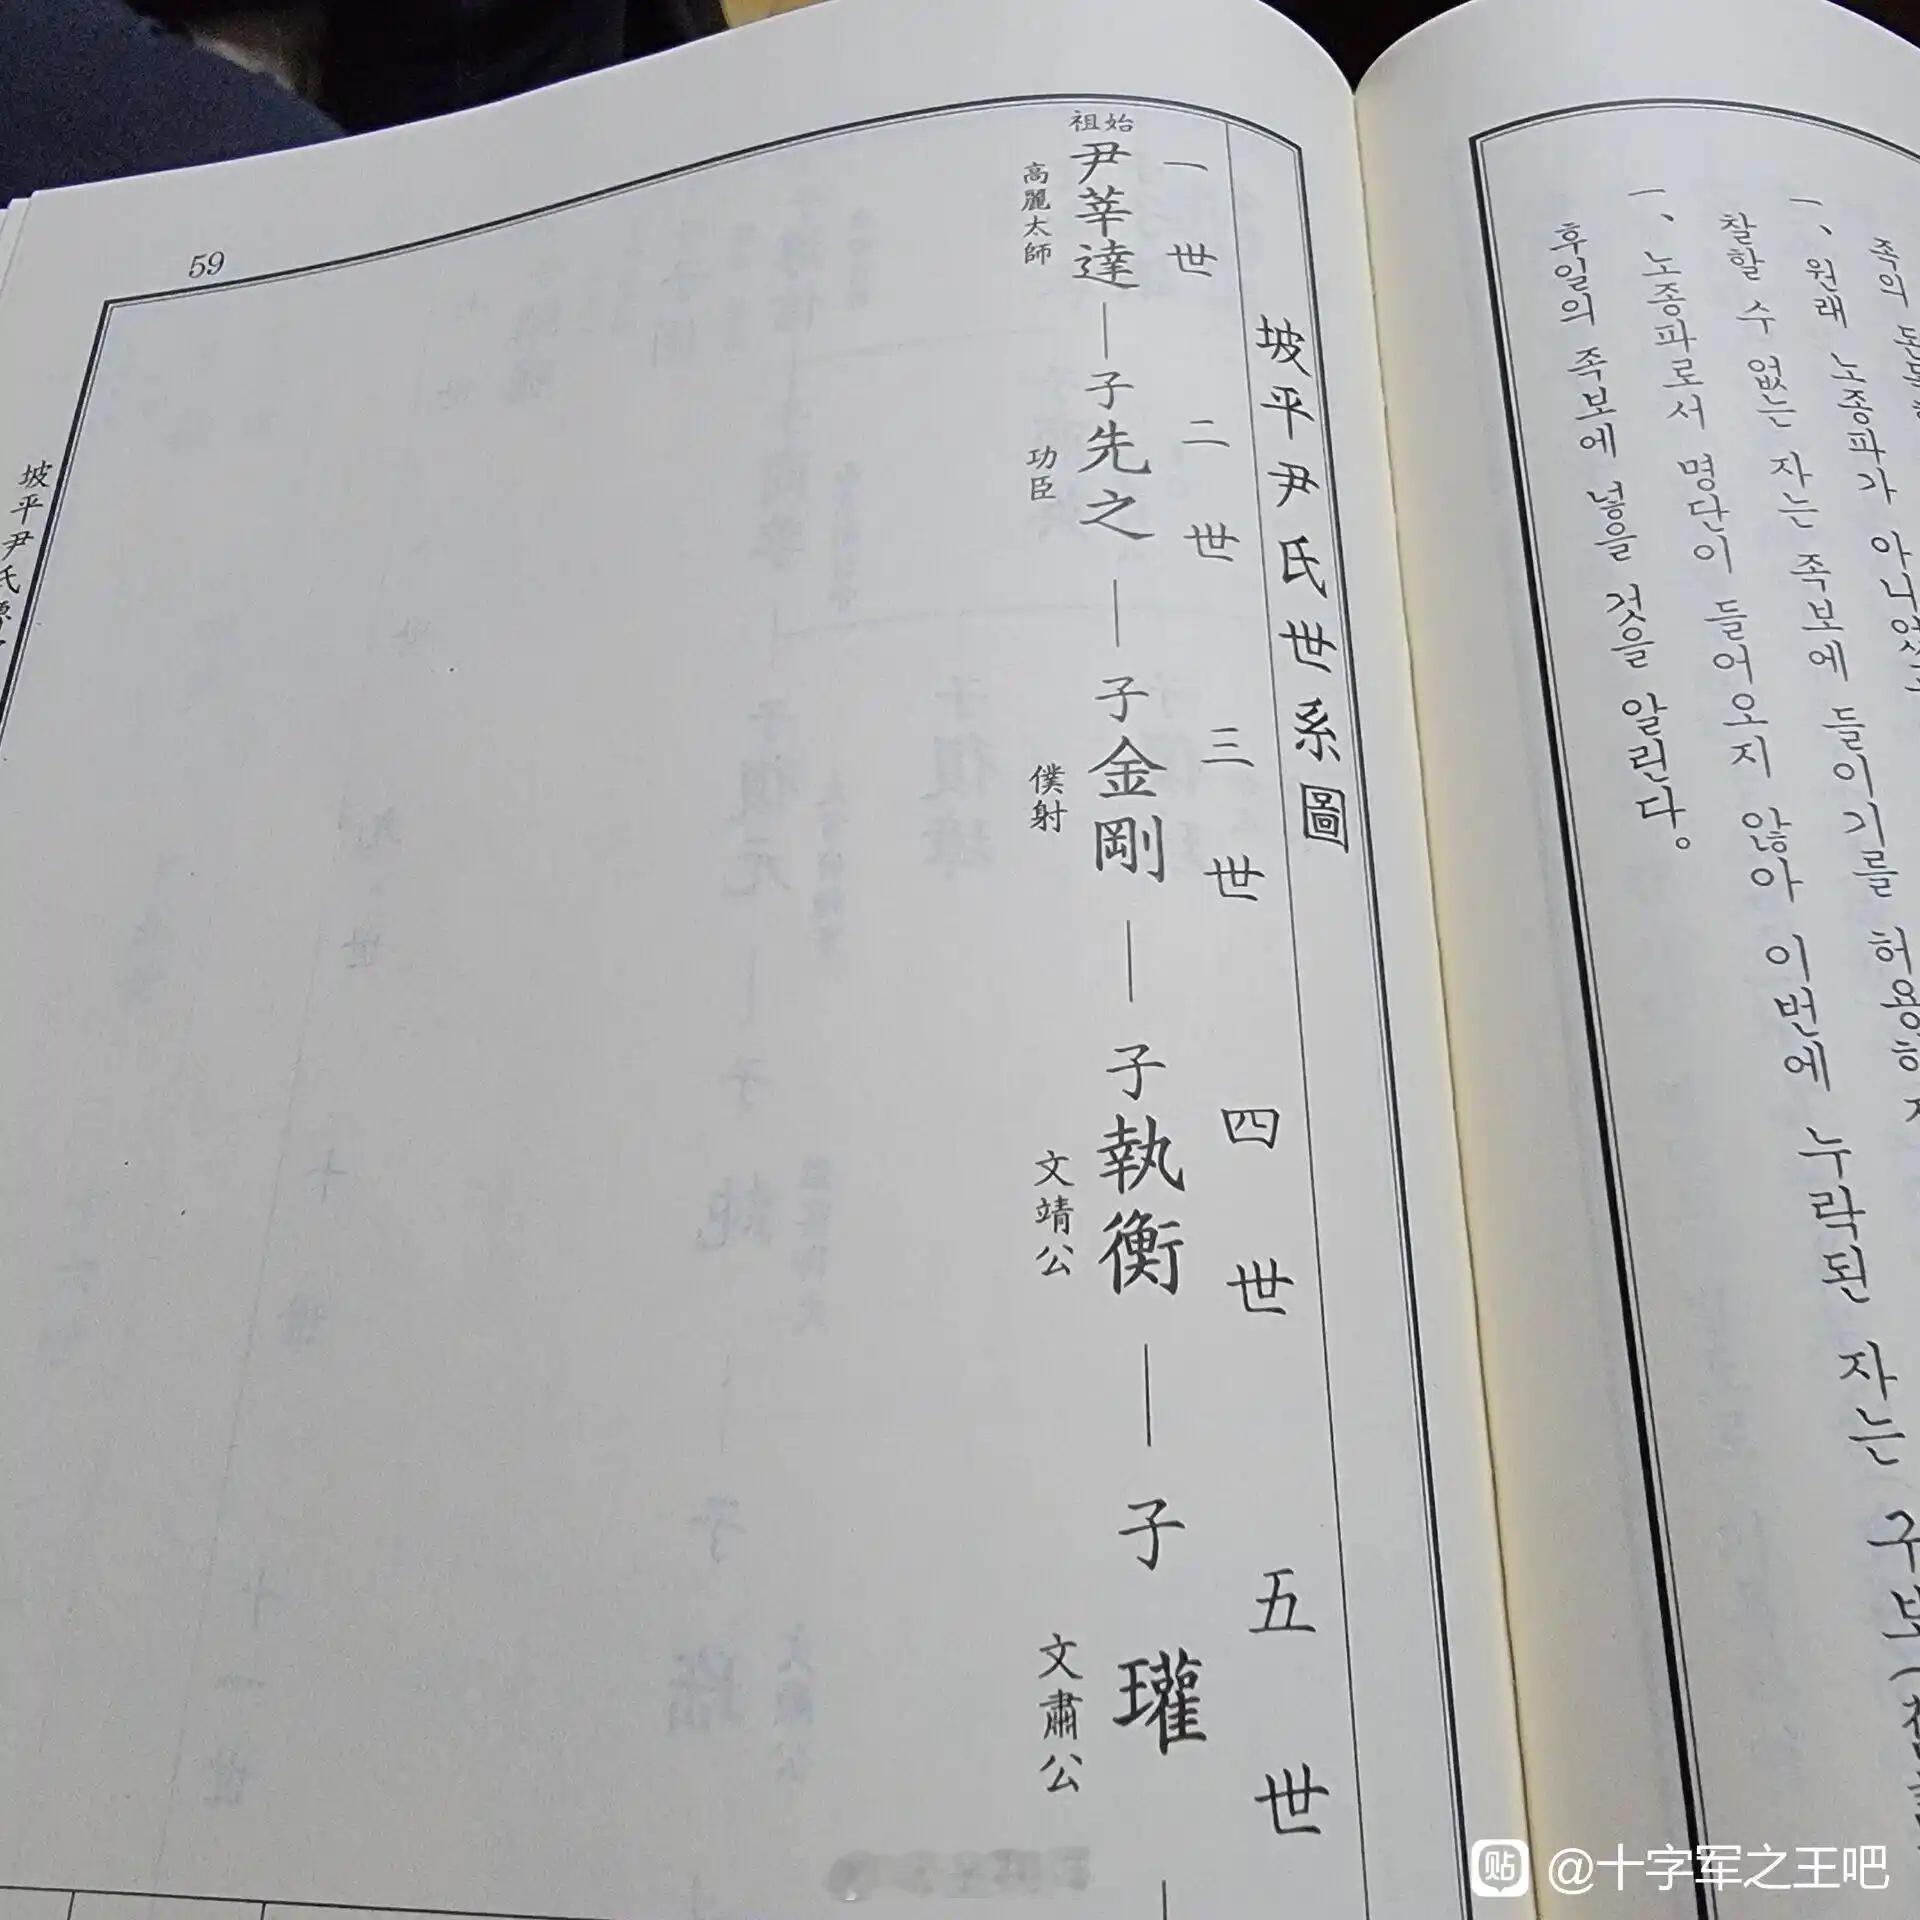 족의 돈목
一、원래 노종파가 아니었
찰할 수 없는 자는 족보에 들이기를 허용하지
一、노종파로서 명단이 들어오지 않아 이번에 누락된 자는 구보
후일의 족보에 넣을 것을 알린다。
坡平尹氏世系圖
一世 二世 三世 四世 五世
始祖
尹莘達 子先之 子金剛 子執衡 子瓘
高麗太師 功臣 僕射 文靖公 文肅公
59
坡平尹氏
贴 @十字军之王吧